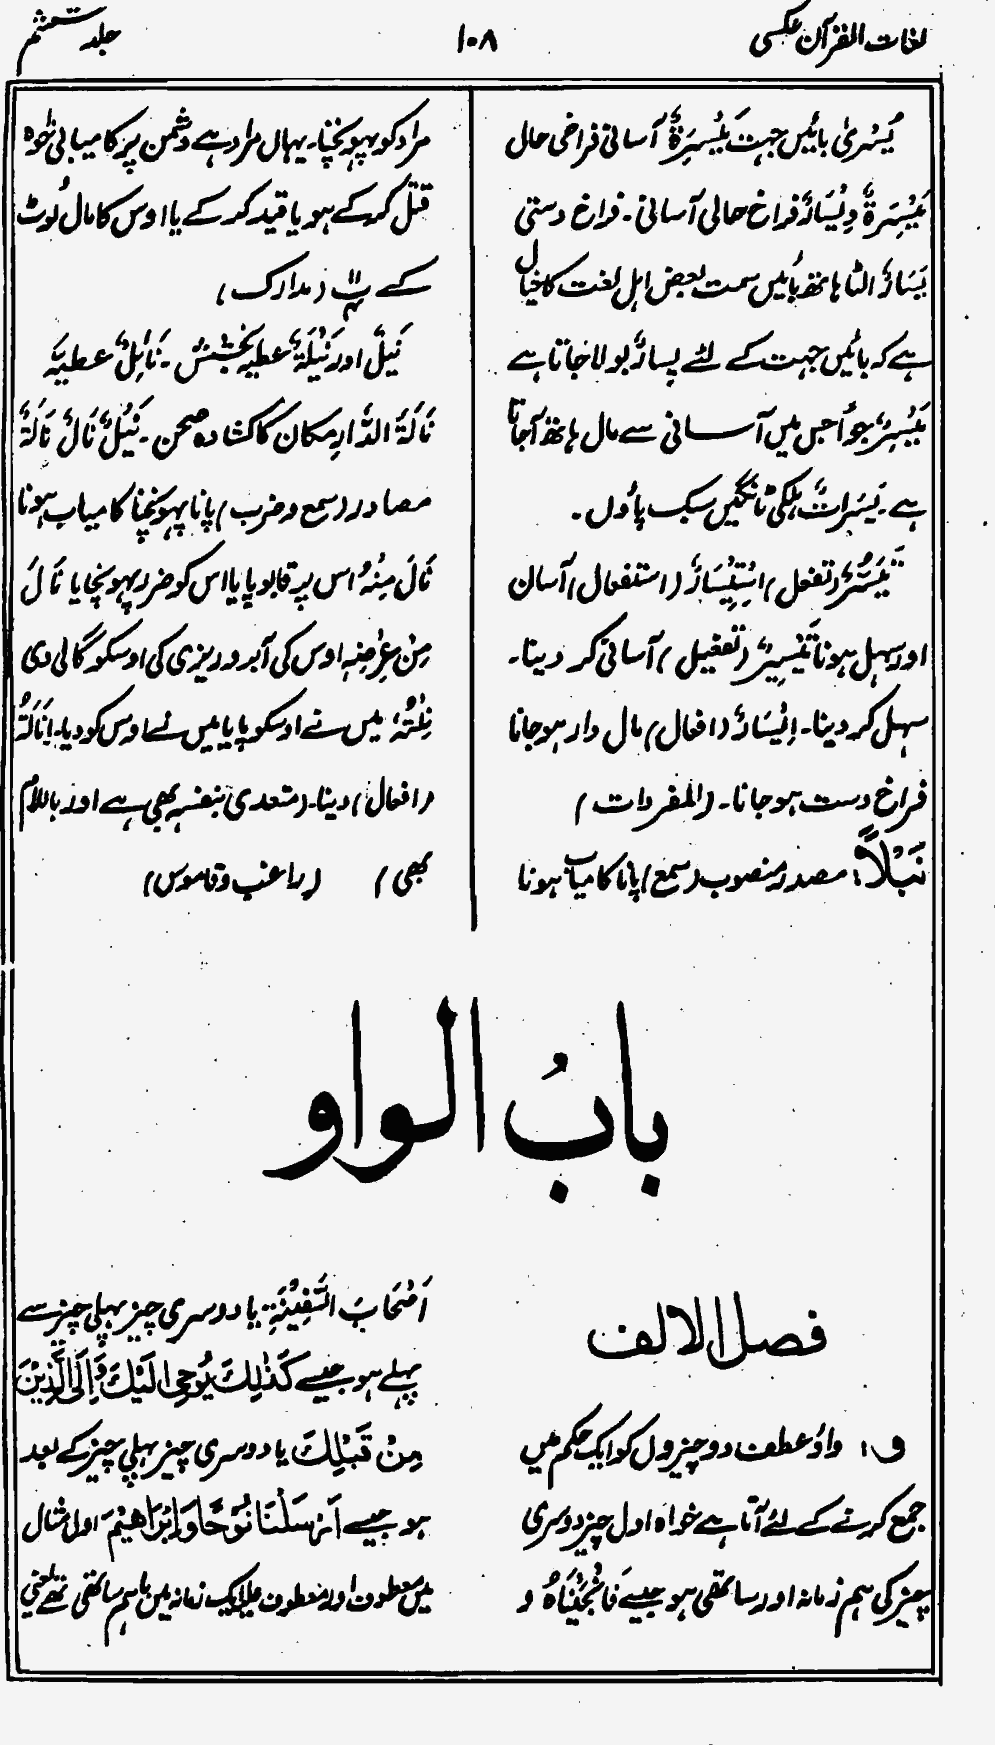 لغات القرآن عکسی
۱۰۸
جلد ششم
یُسْریٰ بائیں جہت مَیْسِرَۃٌ آسانی فراخی حال
مَیْسَرَۃٌ وَیَسَارٌ فراخ حالی آسانی۔ فراخ دستی
یَسَارٌ الٹا ہاتھ بائیں سمت بعض اہل لغت کا خیال
ہے کہ بائیں جہت کے لئے یسارٌ بولا جاتا ہے
مَیْسِرٌ جُوأ جس میں آسانی سے مال ہاتھ آجاتا
ہے۔ یَسَرَاتٌ ہلکی ٹانگیں سبک پاؤں۔
تَیَسُّرٌ (تفعل) اِسْتِیْسَارٌ (استفعال) آسان
اور سہل ہونا تَیْسِیْرٌ (تفعیل) آسانی کر دینا۔
سہل کر دینا۔ اِیْسَارٌ (افعال) مال دار ہو جانا
فراخ دست ہو جانا۔ (المفردات)
نَیْلًا: مصدر منصوب (سمع) پانا کامیاب ہونا
مراد کو پہونچنا۔ یہاں مراد ہے دشمن پر کامیابی خواہ
قتل کر کے ہو یا قید کر کے یا اوس کا مال لُوٹ
کے ہو (مدارک)
نَیْلٌ اور نَیْلَۃٌ عطیہ بخشش۔ نَائِلٌ عطیہ
نَالَۃُ الدَّارِ مکان کا کشادہ صحن۔ نَیْلٌ نَالٌ نَالَۃٌ
مصادر (سمع و ضرب) پانا پہونچنا کامیاب ہونا
نَالَ مِنْہُ اس پر قابو پایا اس کو ضرر پہونچایا نَالَ
مِنْ عِرْضِہٖ اوس کی آبرو ریزی کی اوسکو گالی دی
نِلْتُہٗ میں نے اوسکو پایا میں نے اوس کو دیا۔ اِنَالَۃٌ
(افعال) دینا۔ (متعدی بنفسہٖ بھی ہے اور باللام
بھی) (راغب و قاموس)
بابُ الواو
فصل الالف
و: واؤ عطف دو چیزوں کو ایک حکم میں
جمع کرنے کے لئے آتا ہے خواہ اول چیز دوسری
چیز کی ہم زمانہ اور ساتھی ہو جیسے فَاَنْجَیْنَاہُ وَ
اَصْحَابَ السَّفِیْنَۃِ یا دوسری چیز پہلی چیز سے
پہلے ہو جیسے کَذٰلِکَ یُوْحِی اِلَیْکَ وَاِلَی الَّذِیْنَ
مِنْ قَبْلِکَ یا دوسری چیز پہلی چیز کے بعد
ہو جیسے اَرْسَلْنَا نُوْحًا وَاِبْرَاھِیْمَ اول مثال
میں معطوف اور معطوف علیہ ایک زمانہ میں باہم ساتھی تھے یعنی